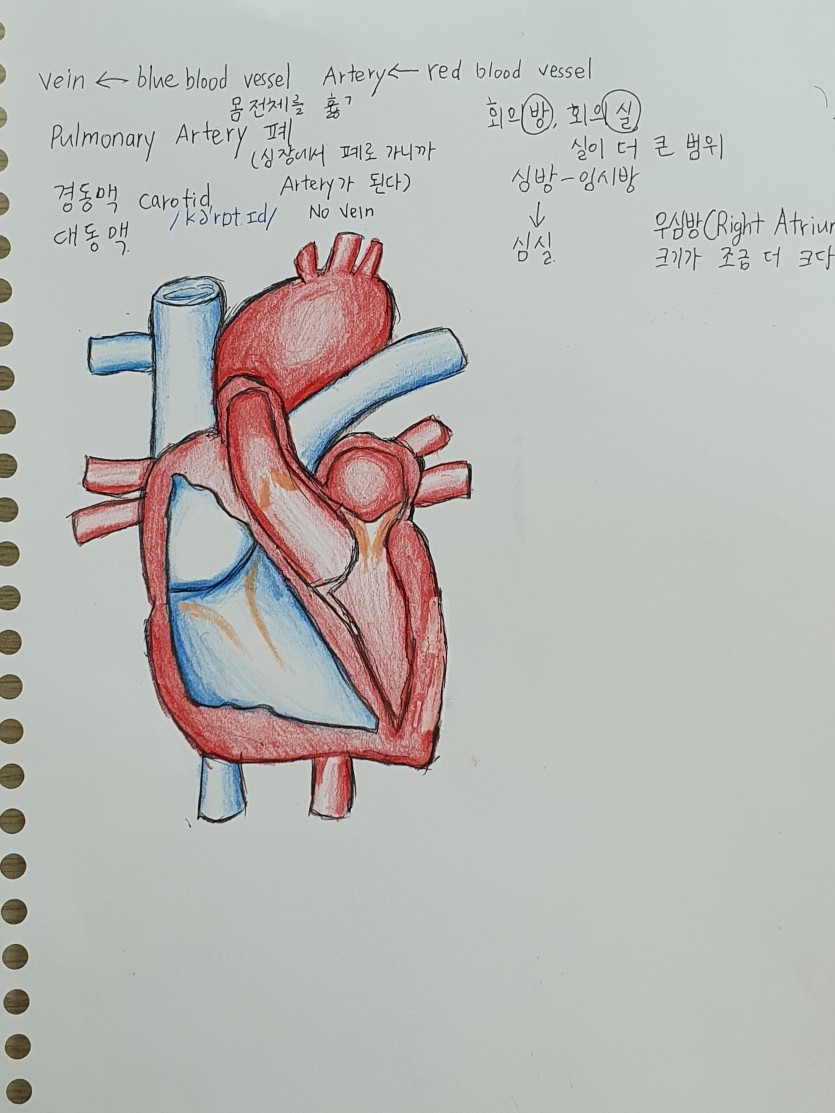 vein ← blue blood vessel Artery ← red blood vessel
몸 전체를
Pulmonary Artery 폐
(심장에서 폐로 가니까
Artery가 된다)
No vein
경동맥 carotid
/kəˈrɒt.ɪd/
대동맥
회의방, 회의실
실이 더 큰 범위
심방-임시방
↓
심실
우심방(Right Atriu
크기가 조금 더 크다